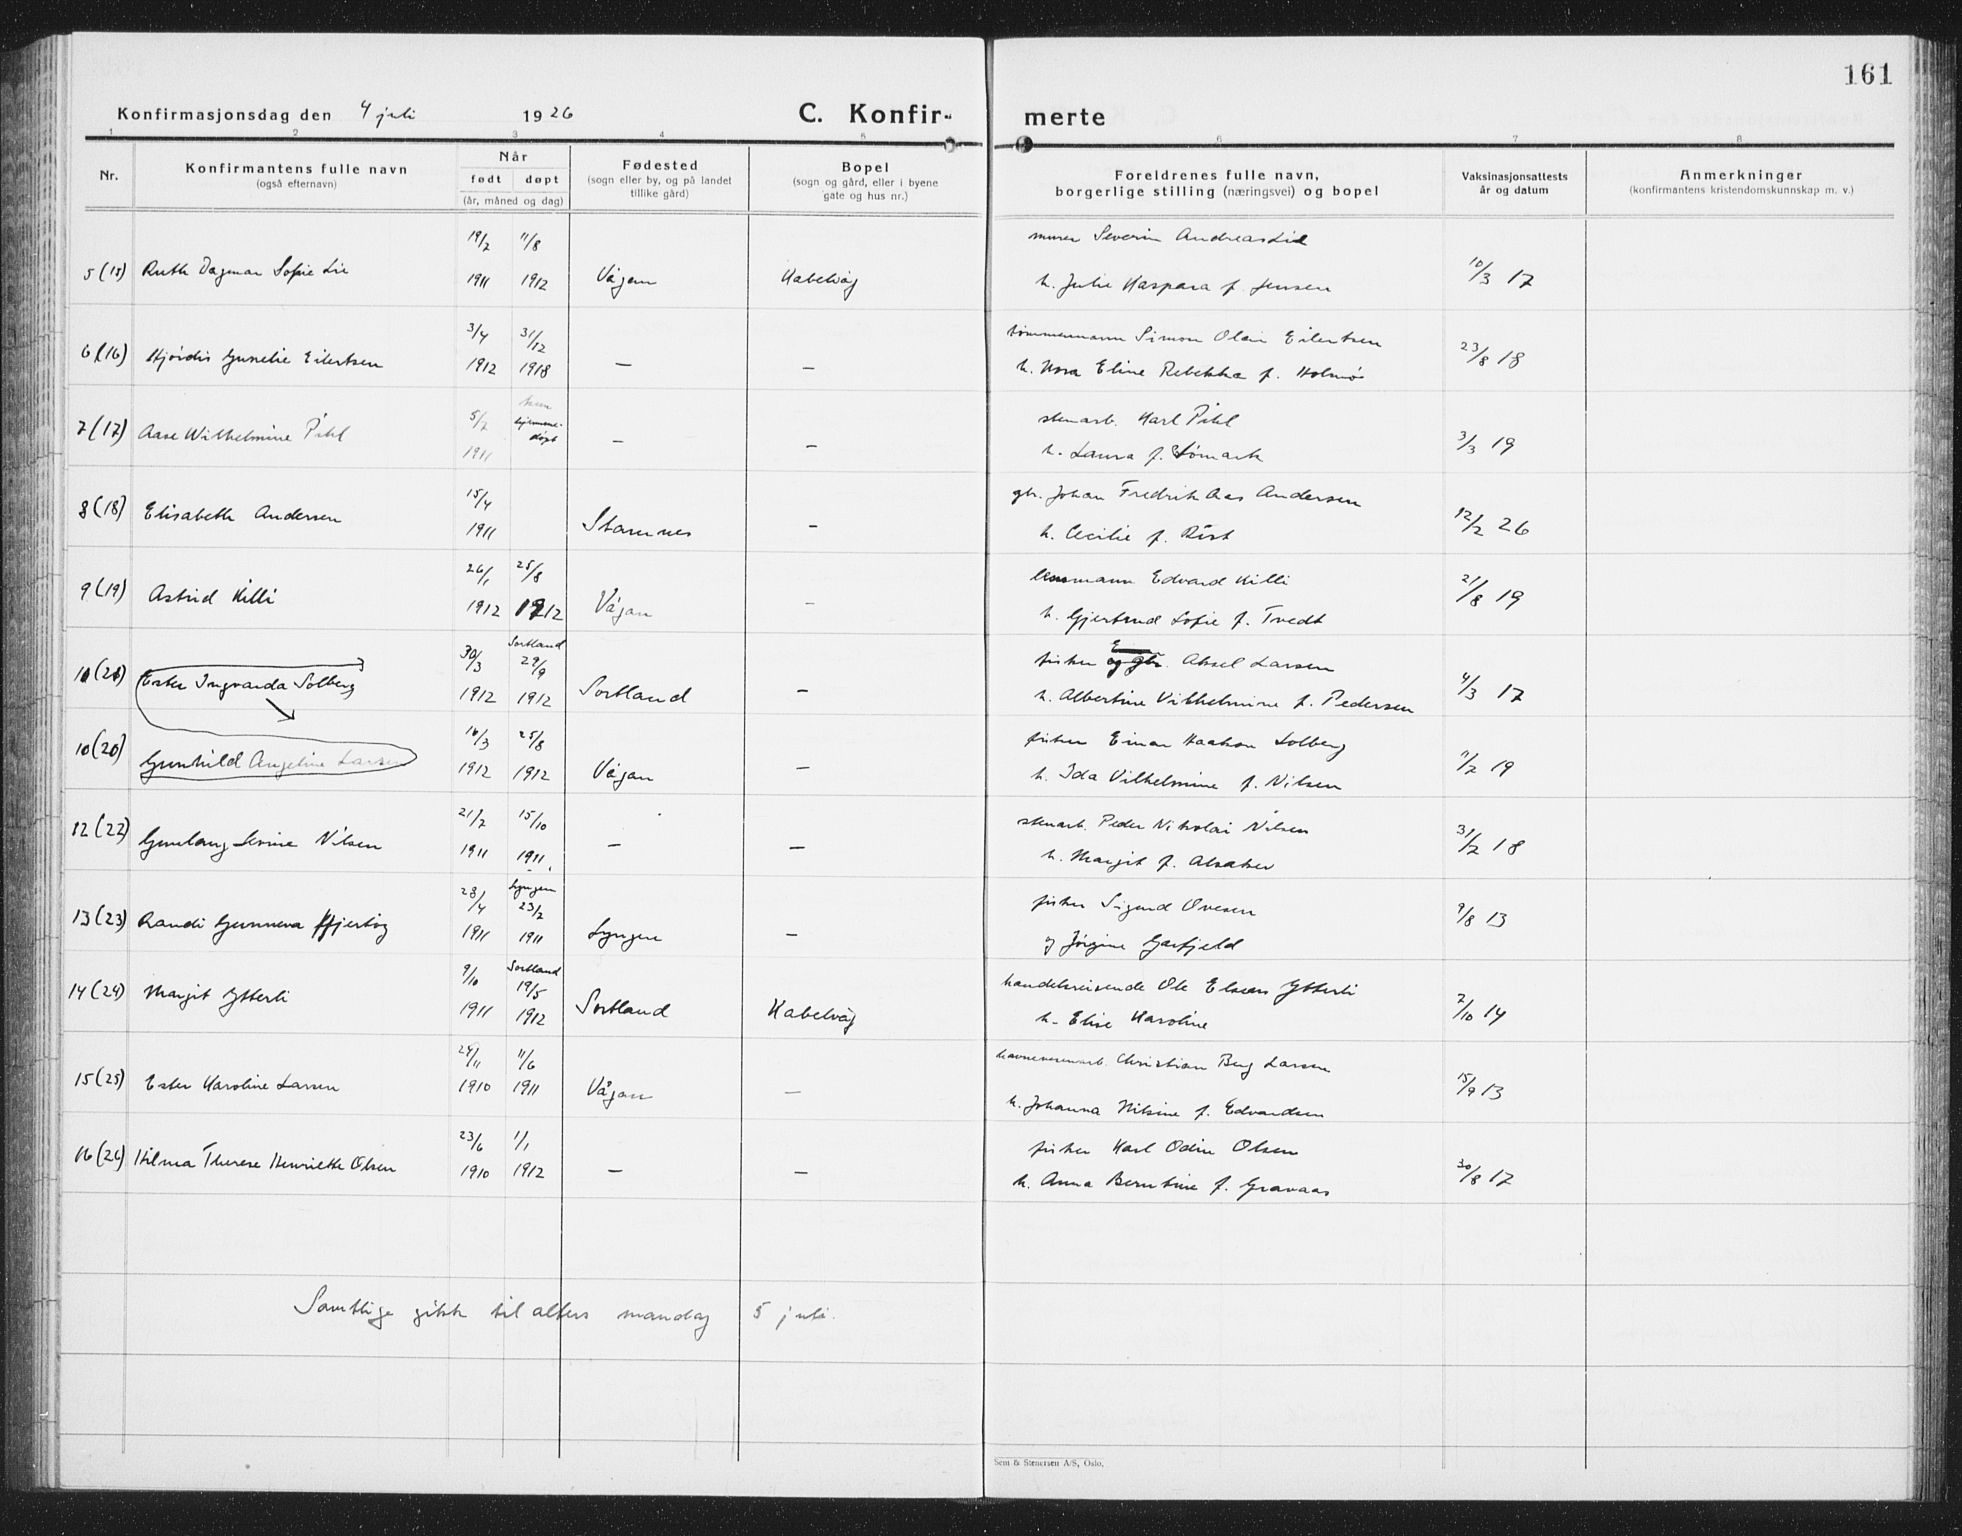 161
Konfirmasjonsdag den 4 juli 1926
C. Konfir-merte
1 2 3 4 5 6 7 8
Nr.
Konfirmantens fulle navn
(også efternavn)
Når
født døpt
(år, måned og dag)
Fødested
(sogn eller by, og på landet
tillike gård)
Bopel
(sogn og gård, eller i byene
gate og hus nr.)
Foreldrenes fulle navn,
borgerlige stilling (næringsvei) og bopel
Vaksinasjonsattests
år og datum
Anmerkninger
(konfirmantens kristendomskunnskap m. v.)
19/2 11/8 murer Severin Andreas Lie
5 (15) Ruth Dagmar Sofie Lie 1911 1912 Vågan Kabelvåg h. Julie Kaspara f. Jensen 10/3 17
3/4 31/12 tømmermann Simon Olai Eilertsen
6 (16) Hjørdis Gunelie Eilertsen 1912 1918 — — h. Nora Eline Rebekka f. Holmø 23/8 18
5/2 kun hjemme-døpt stenarb. Karl Pihl
7 (17) Aase Wilhelmine Pihl 1911 — — h. Laura f. Sømark 3/3 19
15/4 gbr. Johan Fredrik Aas Andersen
8 (18) Elisabeth Andersen 1911 Stamnes — h. Cecilie f. Røst 12/2 26
26/1 25/8 lensmann Edvard Killi
9 (19) Astrid Killi 1912 1912 Vågan — h. Gjertrud Sofie f. Tvedt 21/8 19
30/3 Sortland 29/9 fisker og gbr. Aksel Larsen
Ester Ingvarda Solberg 1912 1912 Sortland — h. Albertine Vilhelmine f. Pedersen 4/3 17
16/3 25/8 fisker Einar Haakon Solberg
10 (20) Gunhild Angeline Larsen 1912 1912 Vågan — h. Ida Vilhelmine f. Nilsen 11/2 19
21/2 15/10 stenarb. Peder Nikolai Nilsen
12 (22) Gunlaug Sevine Nilsen 1911 1911 — — h. Margit f. Alsaker 31/2 18
28/4 Lyngen 23/2 fisker Sigurd Ovesen
13 (23) Randi Gunneva 1911 1911 Lyngen — og Jørgine Garfjeld 9/8 13
9/10 Sortland 19/5 handelsreisende Ole Ytterli
14 (24) Margit Ytterli 1911 1912 Sortland Kabelvåg h. Elise Karoline 2/10 14
24/11 11/6 havnevesenarb. Christian Berg Larsen
15 (25) Ester Karoline Larsen 1910 1911 Vågan — h. Johanna Nilsine f. Edvardsen 15/9 13
23/6 1/1 fisker Karl Odin Olsen
16 (26) Hilma Therese Henriette Olsen 1910 1912 — — h. Anna Berntine f. Gravaas 30/8 17
Samtlige gikk til alters mandag 5 juli.
Sem & Stenersen A/S, Oslo.